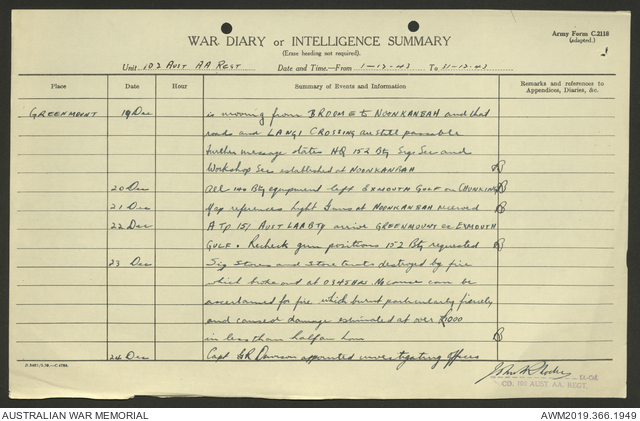 WAR DIARY or INTELLIGENCE SUMMARY
(Erase heading not required).
Army Form C.2118
(adapted.)
Unit 102 AUST AA REGT Date and Time—From 1-12-43 To 31-12-43
Place Date Hour Summary of Events and Information Remarks and references to
Appendices, Diaries, &c.
GREENMOUNT 19 Dec is moving from BROOME to NOONKANBAH and that
roads and LANGI CROSSING are still passable
further message states HQ 152 Bty Sigs Sec and
Workshop Sec established at NOONKANBAH
20 Dec All Bty equipment left EXMOUTH GULF on CHUNKING
21 Dec Map references light Guns at NOONKANBAH received
22 Dec A Tp 151 AUST LAA Bty arrive GREENMOUNT ex EXMOUTH
GULF. Recheck gun positions 152 Bty requested
23 Dec Sig Stores and Store tents destroyed by fire
which broke out at 0345 HRS. No cause can be
ascertained for fire which burnt particularly fiercely
and caused damage estimated at over £1000
in less than half an hour
24 Dec Capt Davison appointed investigating officer
Lt-Col
CO. AUST AA. REGT.
AUSTRALIAN WAR MEMORIAL AWM2019.366.1949